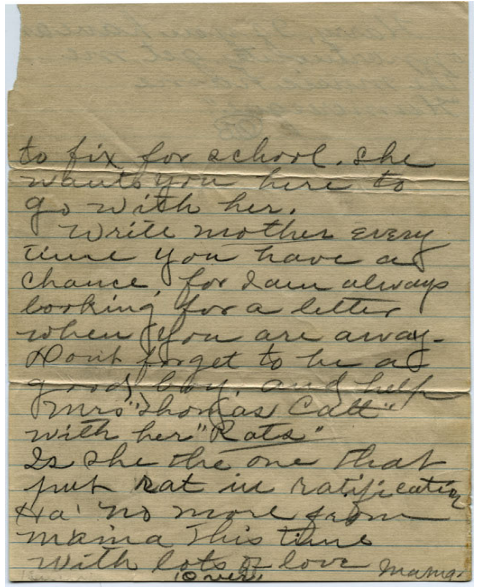 to fix for school. She
wants you here to
go with her.
Write mother every
time you have a
chance, for I am always
looking for a letter
when you are away.
Dont forget to be a
good boy. and help
Mrs "Thomas Catt"
with her "Rats"
Is she the one that
put rat in ratification
Ha! no more from
mama this time
With lots of love Mama.
over